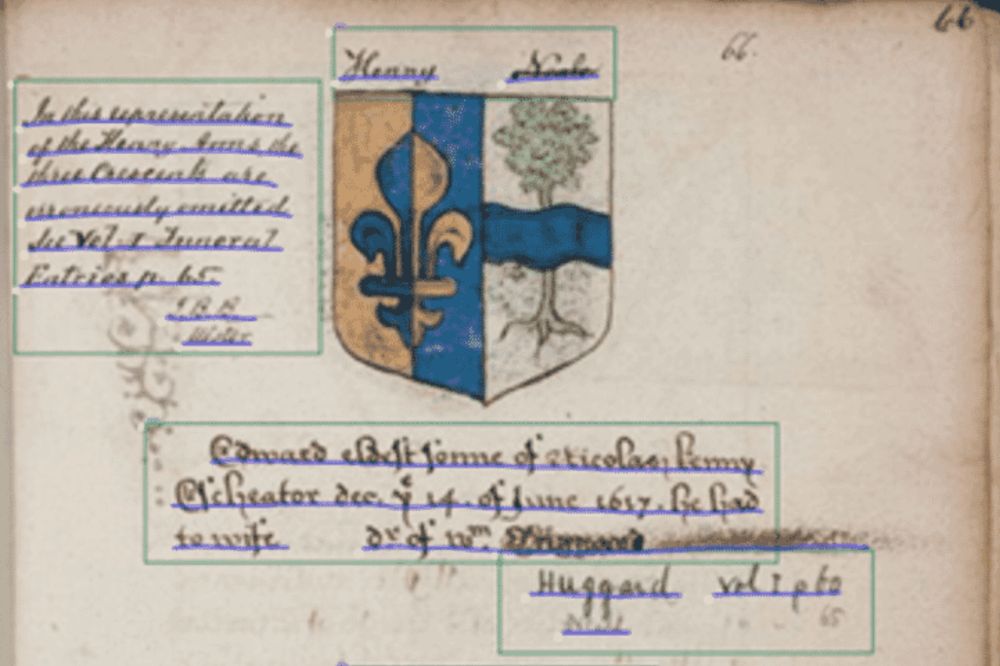 66
66.
Henny
In this representation
of the Henny Arms the
three Crescents are
erroneously omitted
See Vol I Funeral
Entries p. 65.
Edward eldest sonne of Nicolas henny
Escheator dec. yͤ 14. of June 1617. he had
to wife dʳ of wᵐ.
Huggard vol I p 60
65